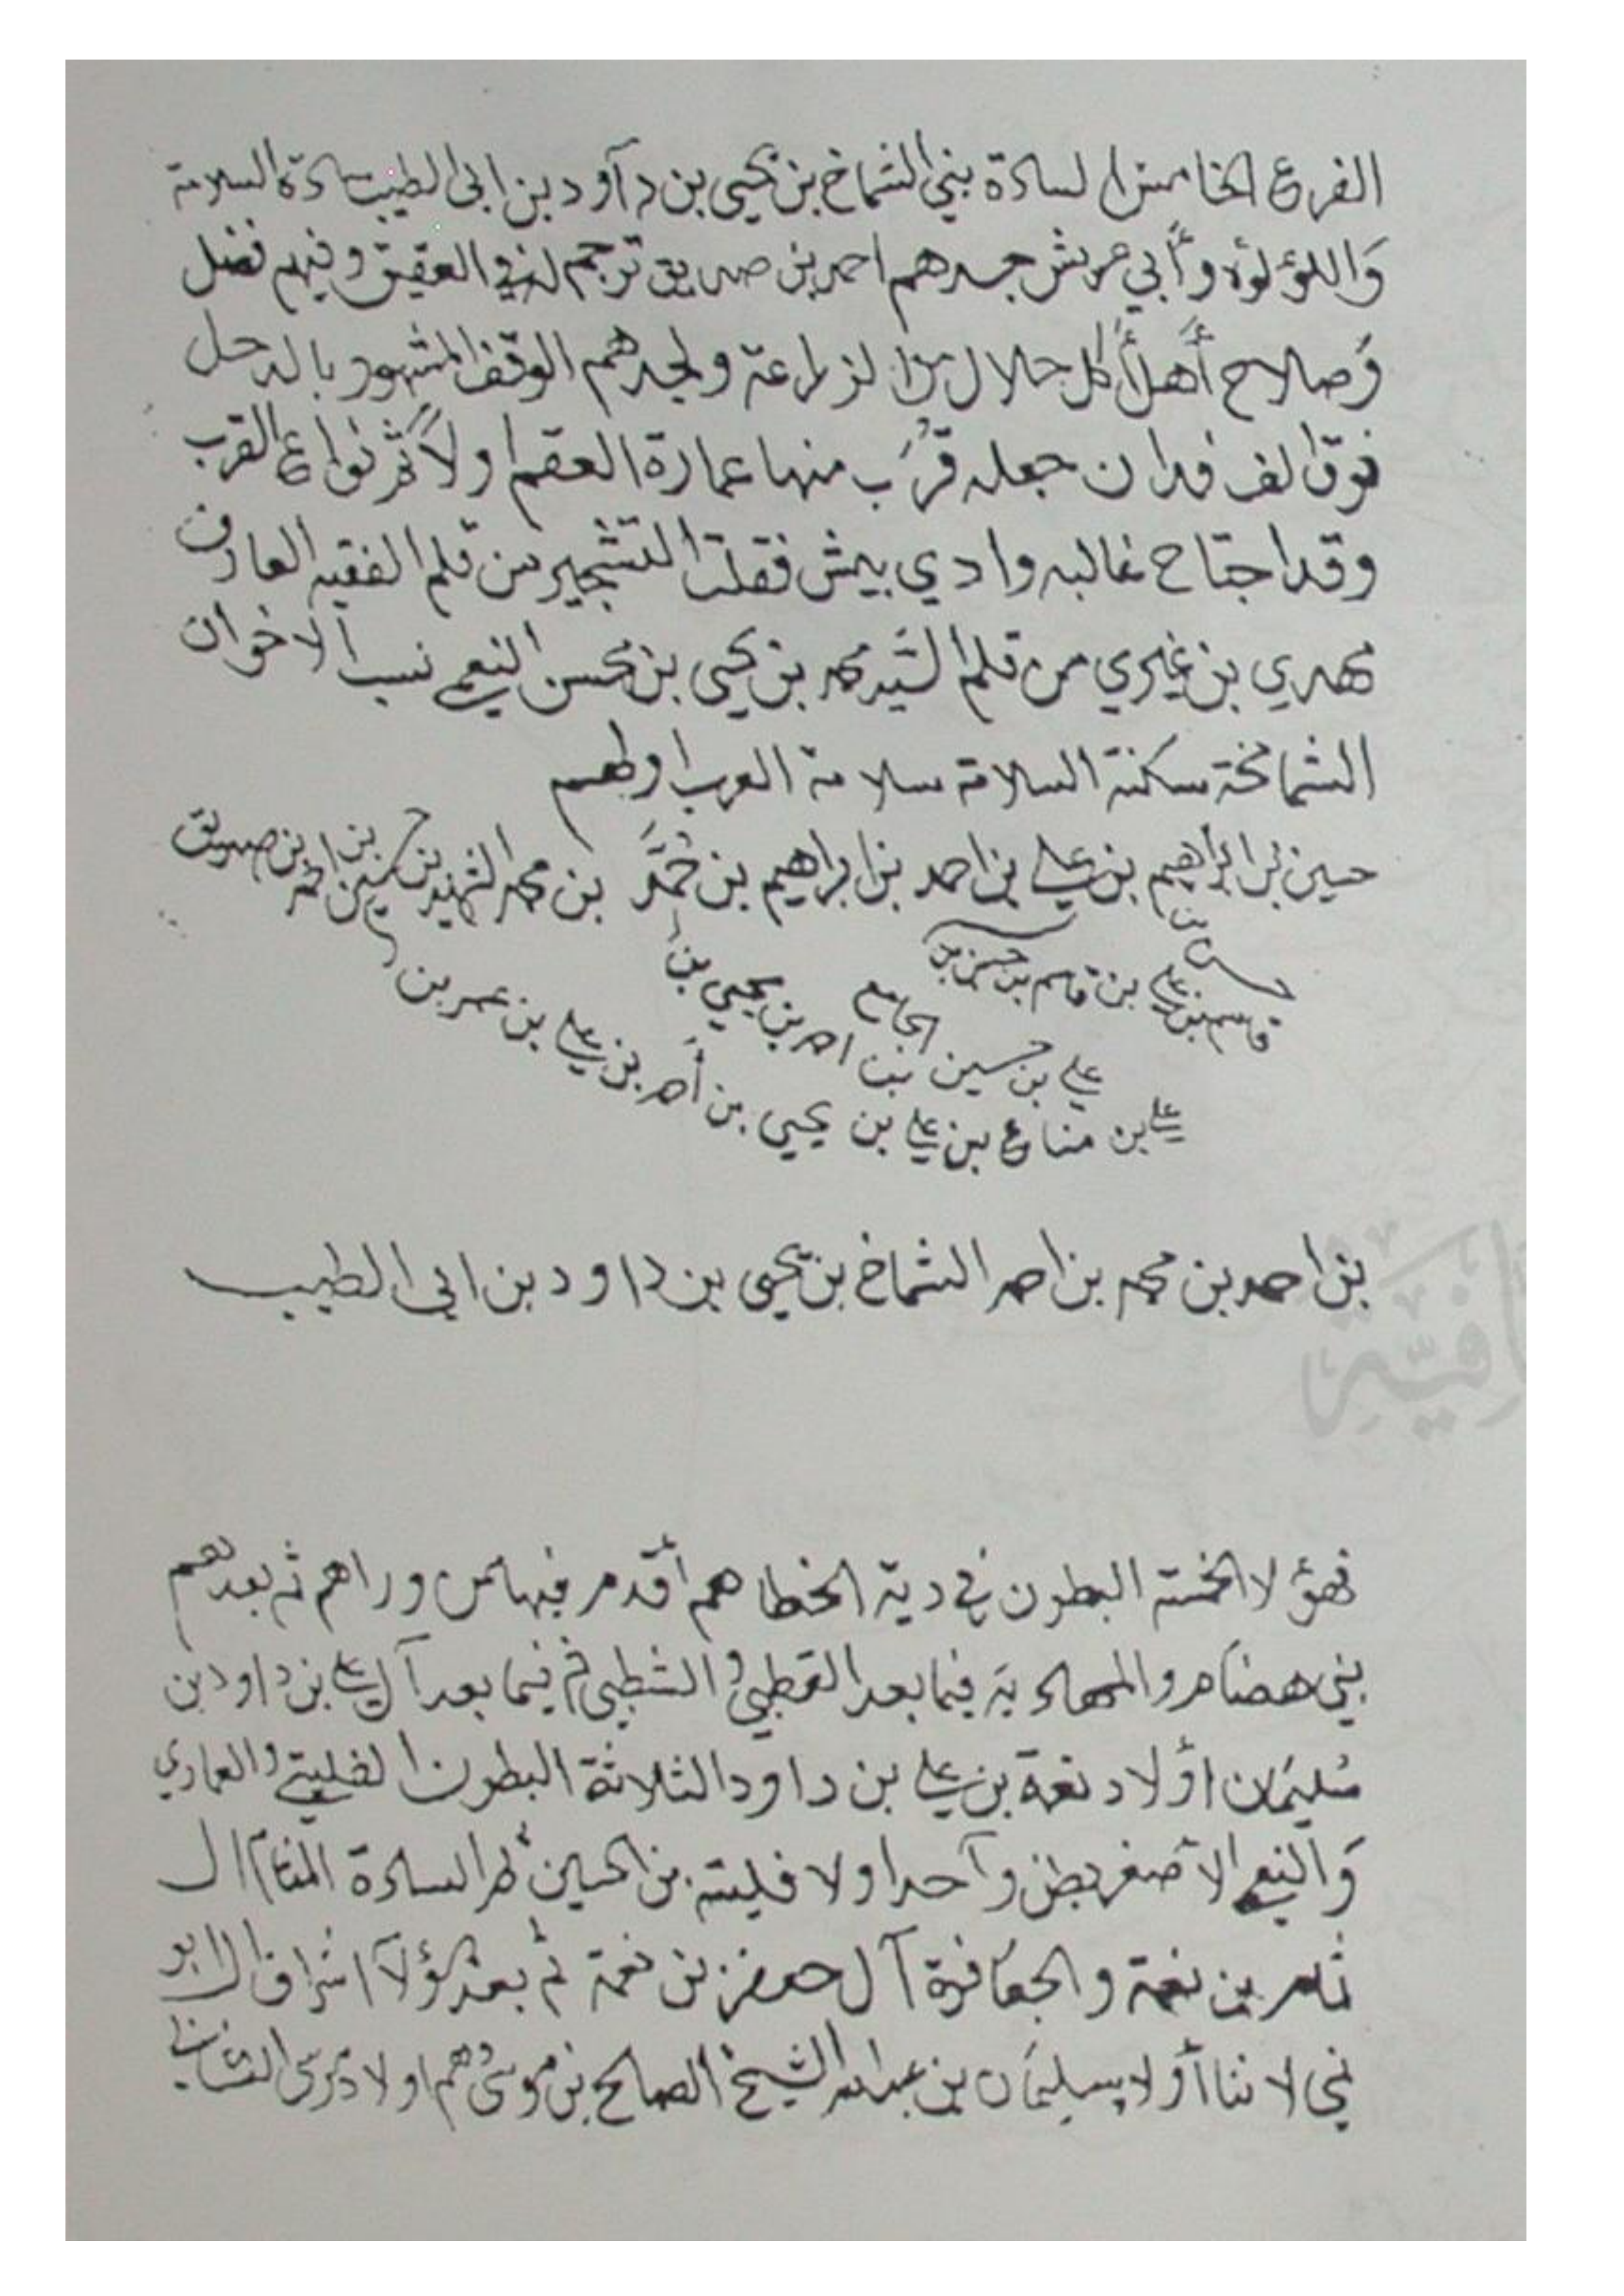 الفرع الخامس السادة بني الشماخ بن يحيى بن دآود بن ابي الطيب سادة السلامة
وَاللؤلؤه وأبي عريش جدهم احمد بن صديق ترجم له في العقيق وفيهم فضل
وَصلاح أهل أكل حلال من الزراعة ولجدهم الوقف المشهور بالدحل
فوق الف فدان جعله قُرَب منها عمارة العقم ولأكثر نواع القرب
وقد اجتاح غالبه وادي بيش فقلت التشجير من قلم الفقيه العارف
مهدي بن غيري من قلم السَّيد محمد بن يحيى بن محسن النعمي نسب الاخوان
الشماخة سكنة السلامة سلامة العرب اولهم
حسين بن ابراهيم بن علي بن احمد بن ابراهيم بن حُمَّد بن محمد الشهيد بن حسين بن احمد بن صديق
قاسم بن علي بن قاسم بن حسن بن
علي بن حسين بن احمد بن يحيى بن
الجامع
علي بن مناع بن علي بن يحيى بن أحمد بن علي بن عمر بن
بن احمد بن محمد بن احمد الشماخ بن يحيى بن داود بن ابي الطيب
فهؤلا الخمسة البطون في دية الخطا هم أقدم فيها من وراهم ثم بعدهم
بني هضام والمهادية فيما بعد القطبي والشطبي ثم فيما بعد آل علي بن داود بن
سُليمَان اولاد نعمة بن علي بن داود الثلاثة البطون الفليتي والعماري
وَالنعمي الأصغر بطن وآحد اولاد فليته بن الحسين ثم السادة
ثامر بن نعمة والجعافرة آل جعفر بن نعمة ثم بعد هؤلآ اشراف ابو
أولاد سليمَان بن عبدالله الشيخ الصالح بن موسى وهم اولاد موسى